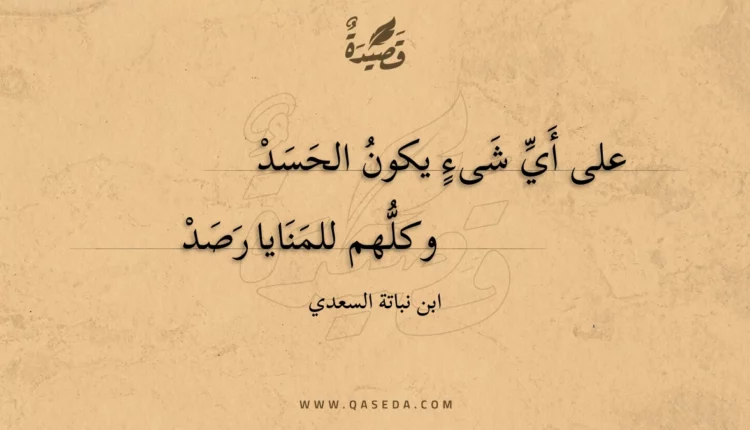 قَصِيْدَةٌ
على أَيِّ شَىءٍ يكونُ الحَسَدْ
وكلُّهم للمَنَايا رَصَدْ
ابن نباتة السعدي
WWW.QASEDA.COM